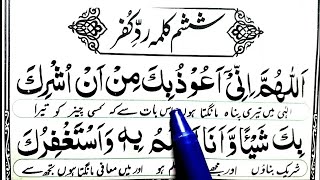 ششم کلمہ ردِّ کفر
اَللّٰهُمَّ اِنِّیْۤ اَعُوْذُ بِكَ مِنْ اَنْ اُشْرِكَ
الٰہی میں تیری پناہ مانگتا ہوں اس بات سے کہ کسی چیز کو تیرا
بِكَ شَیْئًا وَّاَنَا بِهٖ وَاَسْتَغْفِرُكَ
شریک بناؤں اور مجھے ہو اور میں معافی مانگتا ہوں تجھ سے